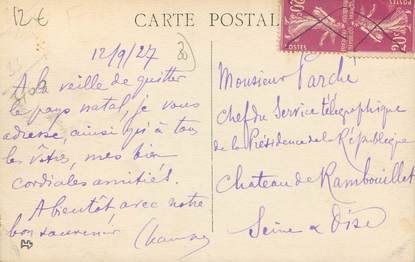 12 €
CARTE POSTALE
12/9/27
A la veille de quitter
le pays natal, je vous
adresse, ainsi qu'à tous
les vôtres, mes bien
cordiales amitiés.
A bientôt avec notre
bon souvenir
Monsieur Parché
Chef du Service télégraphique
de la Présidence de la République
Chateau de Rambouillet
Seine & Oise
20c
20c